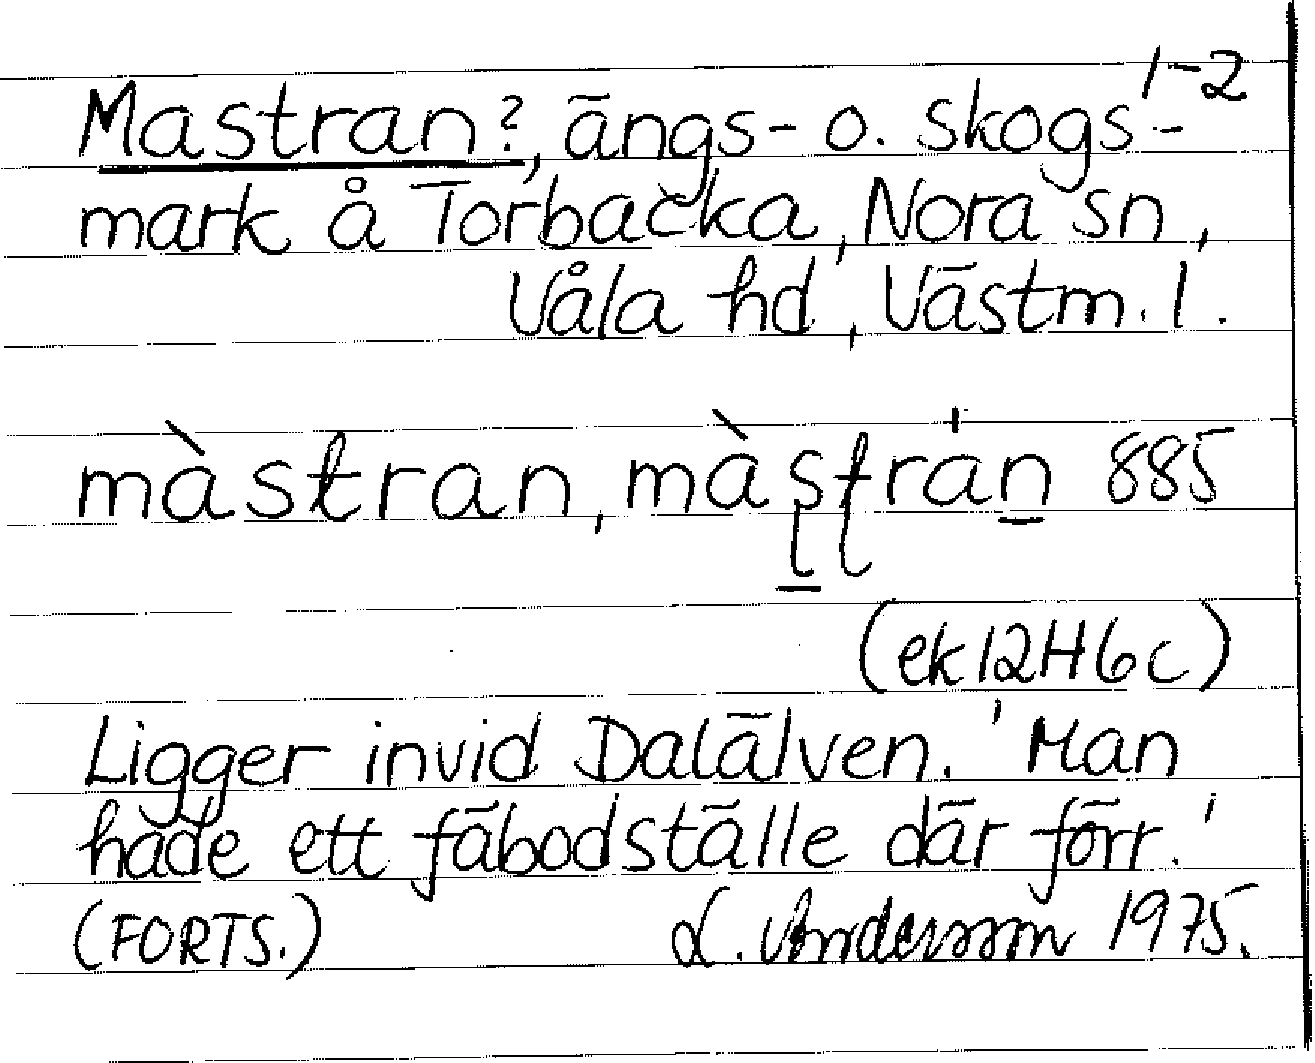 1-2
Mastran?, ängs- o. skogs-
mark å Torbacka, Nora sn,
Våla hd, Västm. l.
màstran, màştrán 885
(ek 12H6c)
Ligger invid Dalälven. 'Man
hade ett fäbodställe där förr.'
(FORTS.) L. Andersson 1975.